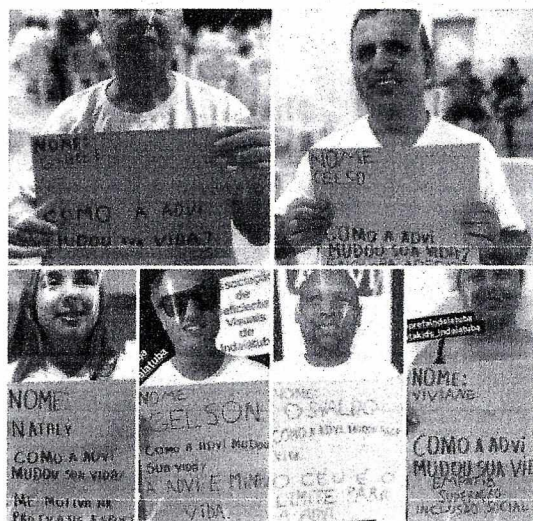 NOME:
COMO A ADVI
MUDOU SUA VIDA?
NOME
CELSO
COMO A ADVI
MUDOU SUA VIDA?
NOME:
NATHLY
COMO A ADVI
MUDOU SUA VIDA?
ME MOTIVA NA
sociação
de
eficiente
Visuais
de
Indaiatub
NOME
GELSON
COMO A ADVI MUDOU
SUA VIDA?
A ADVI E MINHA
VIDA.
NOME:
OSVALDO
COMO A ADVI MUDOU SUA
VIDA
O CÉU É O
LIMITE PARA
prefeindaiatuba
NOME:
VIVIANE
COMO A ADVI
MUDOU SUA VID
EMPATIA
SUPERAÇÃO
INCLUSÃO SOCIAL